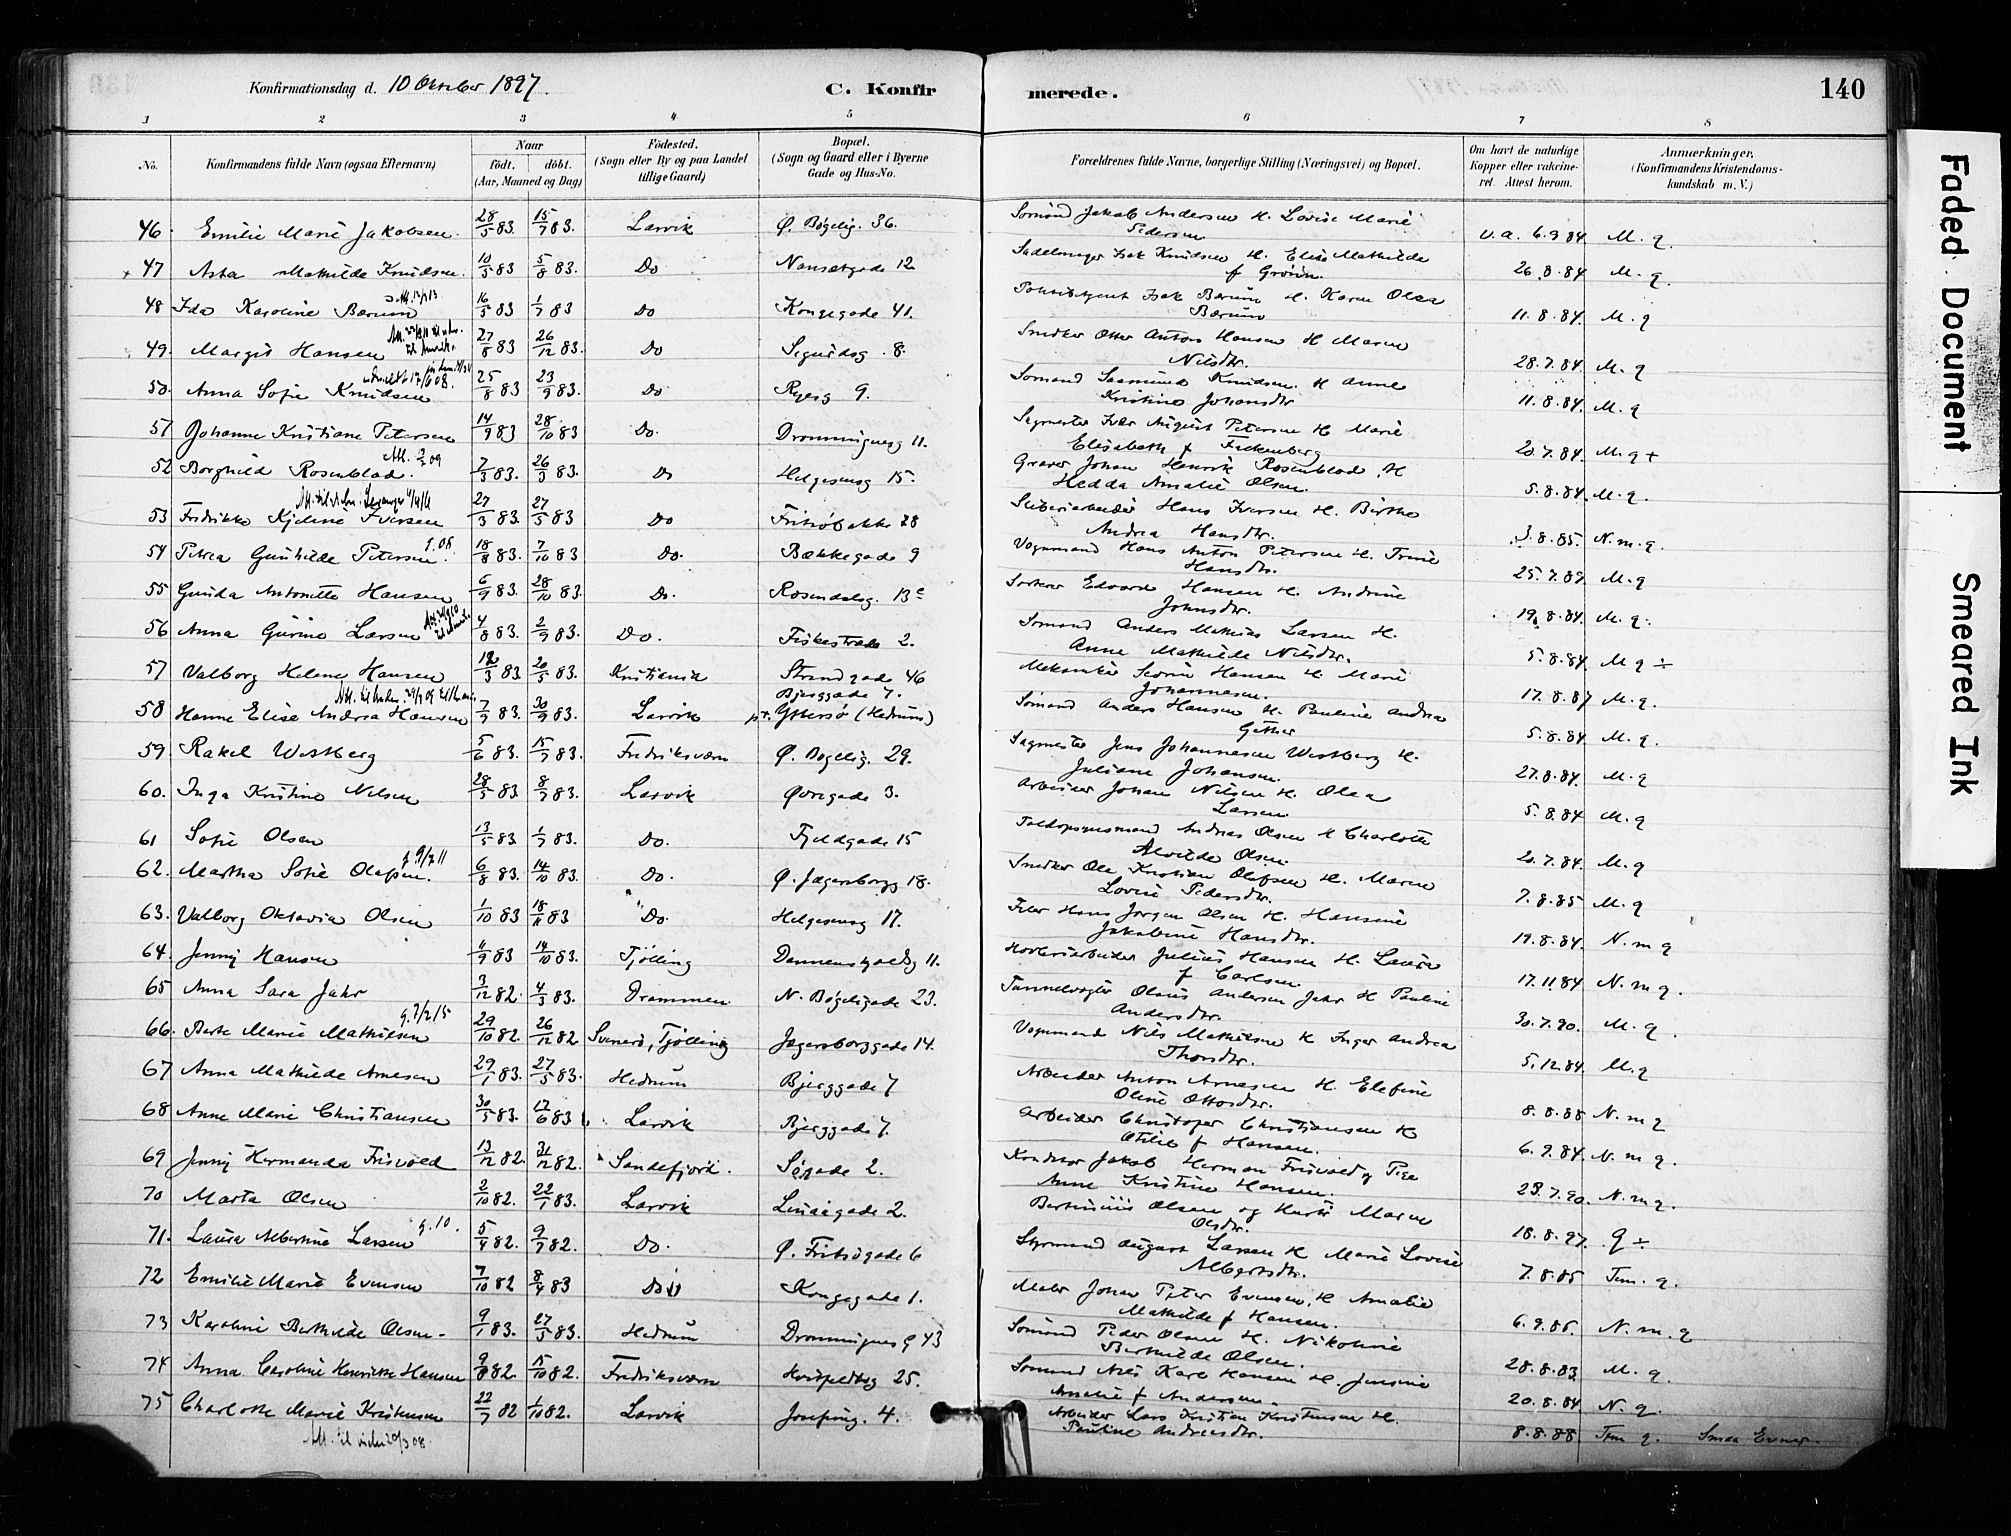 Konfirmationsdag d. 10 Oktober 1897. C. Konfirmerede. 140
1 2 3 4 5 6 7 8
No. Konfirmandens fulde Navn (ogsaa Efternavn) Naar födt. döbt. (Aar, Maaned og Dag) Födested. (Sogn eller By og paa Landet tillige Gaard) Bopæl. (Sogn og Gaard eller i Byerne Gade og Hus-No. Forældrenes fulde Navne, borgerlige Stilling (Næringsvei) og Bopæl. Om havt de naturlige Kopper eller vakcineret. Attest herom. Anmærkninger. (Konfirmandens Kristendomskundskab m. V.)
46. Emilie Marie Jakobsen. 28/5 83. 15/7 83. Larvik Ø. Bøgelig. 36. Sømand Jakob Andersen H. Lovise Marie Pedersen v.a. 6.9.84 M. g.
47 Asta Mathilde Knudsen. 10/5 83 5/8 83. Do Nansetgade 12 Sadelmager Isak Knudsen H. Elise Mathilde f Grøun. 26.8.84 M. g.
48 Ida Karoline Bærum 16/5 83 1/7 83 Do Kongegade 41. Isak Bærum H. Karen Olea Bærum 11.8.84. M. g
49. Margit Hansen 27/8 83 26/12 83. Do Sigurdsg. 8. Snedker Otter Anton Hansen H Maren Nilsdtr. 28.7.84 M. g
50. Anna Sofie Knudsen 25/8 83 23/9 83. Do Ryesg 9. Sømand Knudsen. H Anne Kristine Johansdtr 11.8.84. M. g
51 Johanne Kristiane Petersen 14/9 83 28/10 83 Do. Dronningensg 11. Sagmester Iver August Petersen H Marie Elisabeth f Falkenberg 20.7.84. M. g +
52 Borghild Rosenblad. 7/3 83. 26/3 83. Do Helgesensg 15. Graver Johan Henrik Rosenblad H Hedda Amalie Olsen. 5.8.84. M. g.
53 Fredrikke Kjeline Iversen 27/3 83. 27/5 83 Do Fritsøbakke 28 Hans Iversen H. Birthe Andrea Hansdtr. 3.8.85. N. m. g.
54 Petrea Gunhilde Petersen. 18/8 83. 7/10 83 Do. Bækkegade 9 Vognmand Hans Anton Petersen H. Trine Hansdtr. 25.7.89. M. g
55 Gunda Antonette Hansen 6/9 83. 28/10 83. Do. Rosendalsg. 13c Edvard Hansen H. Andrine Johnsdtr. 19.8.84. M. g.
56 Anna Gurine Larsen 4/8 83. 2/9 83. Do. Fiskestræde 2. Sømand Anders Mathias Larsen H. Anne Mathilde Nilsdtr. 5.8.84 M g ÷
57 Valborg Helene Hansen 83 20/5 83. Kristiania Strandgade 46 Mekaniker Hansen H Marie Johannesen. 17.8.87 M. g.
58 Hanne Elise Andrea Hansen 7/9 83. 30/9 83. Larvik Bjerggade 7. pt. Yttersø (Hedrum) Sømand Anders Hansen H. Pauline Andrea 5.8.84 M. g.
59. Rakel Westberg 5/6 83. 15/7 83. Fredriksværn Ø. Bøgelig. 29. Sagmester Jens Johannesen Westberg H. Juliane Johansen. 27.8.84. M. g
60. Inga Kristine Nilsen 28/5 83 8/7 83. Larvik Øvregade 3. Arbeider Johan Nilsen H. Olea Larsen 5.8.84 M. g
61 Sofie Olsen 13/5 83. 1/7 83. Do. Fjeldgade 15 Toldopsynsmand Andreas Olsen H Charlotte Alvilde Olsen. 20.7.84. M. g
62. Martha Sofie Olafsen. 6/8 83. 14/10 83. Do. Ø. Jægersborgg 18. Snedker Ole Kristian Olafsen H. Maren Lovise Pedersdtr. 7.8.85 M. g
63. Valborg Oktavia Olsen 1/10 83 18/11 83 Do. Helgesensg 17. Hans Jørgen Olsen H. Hansine Jakobine Hansdtr. 19.8.84. N. m g
64. Jenny Hansen 11/9 83 14/10 83. Tjølling Dannenskjoldsg 11. Høvleriarbeider Julius Hansen H. Laura f Carlsen 17.11.84 N. m g.
65 Anna Sara Jahr 3/12 82. 4/3 83. Drammen N. Bøgeligade 23. Tunnelvogter Olaus Andersen Jahr H Pauline Andersdtr. 30.7.90. M. g.
66. Berte Marie Mathisen 29/10 82. 26/12 82 Svenerø, Tjølling Jægersborggade 14. Vognmand Nils Mathisen H Inger Andrea Thorsdtr. 5.12.84. M. g
67 Anna Mathilde Arnesen 29/1 83. 27/5 83. Hedrum Bjerggade 7 Arbeider Anton Arnesen H. Elefine Oline Ottosdtr. 8.8.88 N. m g
68 Anne Marie Christiansen 30/5 83. 17/6 83 Larvik Bjerggade 7. Arbeider Christofer Christiansen H Otilie f Hansen. 6.9.84. N. m g.
69 Jenny Hermanda Frisvold 13/12 82. 31/12 82. Sandefjord. Søgade 2. Konditor Jakob Herman Frisvold og Pige Anne Kristine Hansen. 23.7.90. N. m g.
70 Marta Olsen 2/10 82. 22/1 83. Larvik Linaaegade 2. Bertinius Olsen og Hustr Maren Olsdtr. 18.8.97. g ÷
71. Laura Albertine Larsen 5/4 82. 9/7 82. Do. Ø. Fritsøgade 6 Styrmand August Larsen H Marie Lovise Albertsdtr. 7.8.85 Tem. g.
72 Emilie Marie Evensen 7/10 82 8/4 83 Do Kongegade 1. Maler Johan Peter Evensen. H Amalie Mathilde f Hansen. 6.9.86. N. m. g
73 Karoline Berthilde Olsen. 9/1 83. 27/5 83. Hedrum Dronningensg 43 Sømand Peder Olsen H. Nikoline Berthilde Olsen. 28.8.83. M. g.
74 Anna Caroline Henrikke Hansen 9/8 82. 15/10 82. Fredriksværn Hvitfeldtsg 25. Sømand Nils Karl Hansen H. Jensine Amalie f Andersen. 20.8.84 N. g.
75 Charlotte Marie Kristensen 22/7 82 1/10 82. Larvik Josefineg. 4. Arbeider Lars Kristian Kristensen H. Pauline Andreasdtr. 8.8.88 Tem g. Smaa Evner.
Faded Document
Smeared Ink